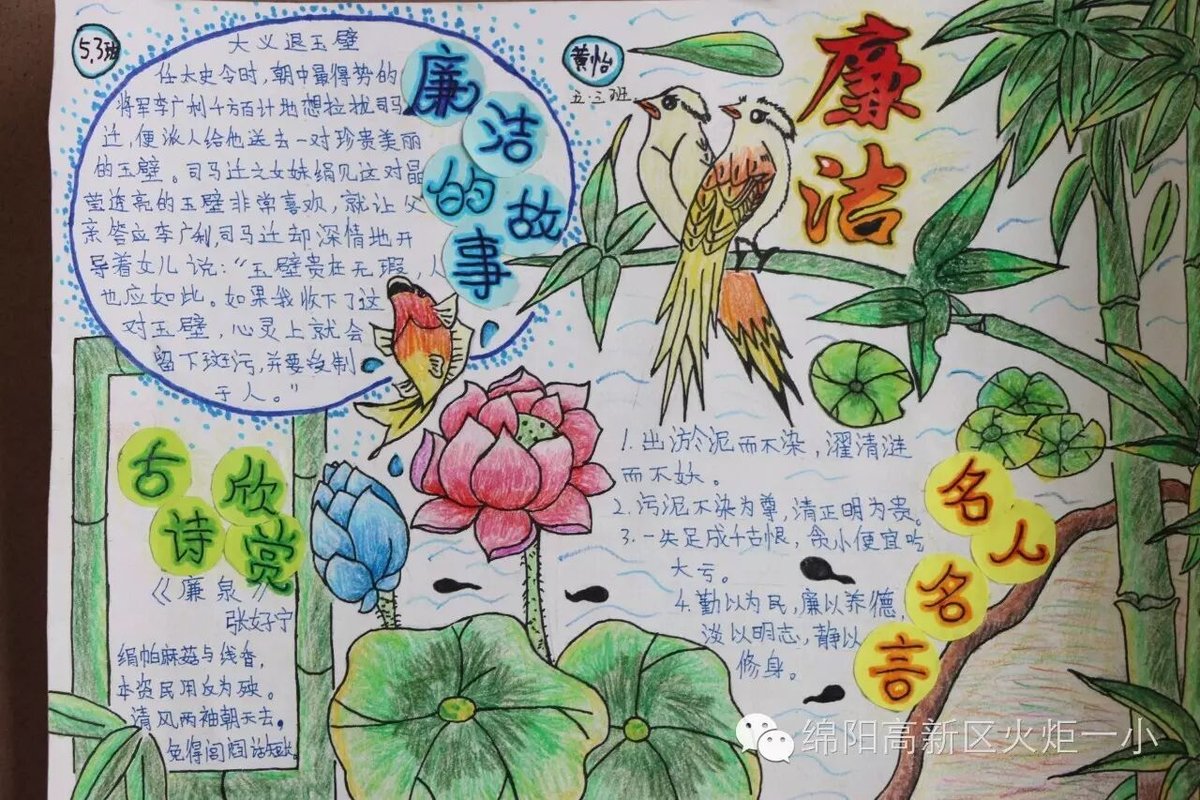 5.3班
大义退玉壁
任太史令时,朝中最得势的
将军李广利千方百计地想拉拢司马
迁,便派人给他送去一对珍贵美丽
的玉壁。司马迁之女妹绢见这对晶
莹透亮的玉壁非常喜欢,就让父
亲答应李广利,司马迁却深情地开
导着女儿说:“玉壁贵在无瑕,人
也应如此。如果我收下了这
对玉壁,心灵上就会
留下斑污,并要受制
于人。”
廉洁的故事
黄怡
五.三班
廉洁
古诗欣赏
《廉泉》
张好宁
绢帕麻菇与线香,
本资民用反为殃。
清风两袖朝天去。
免得闾阎话短长
1.出淤泥而不染,濯清涟
而不妖。
2.污泥不染为尊,清正明为贵。
3.一失足成千古恨,贪小便宜吃
大亏。
4.勤以为民,廉以养德
淡以明志,静以
修身。
名人名言
绵阳高新区火炬一小